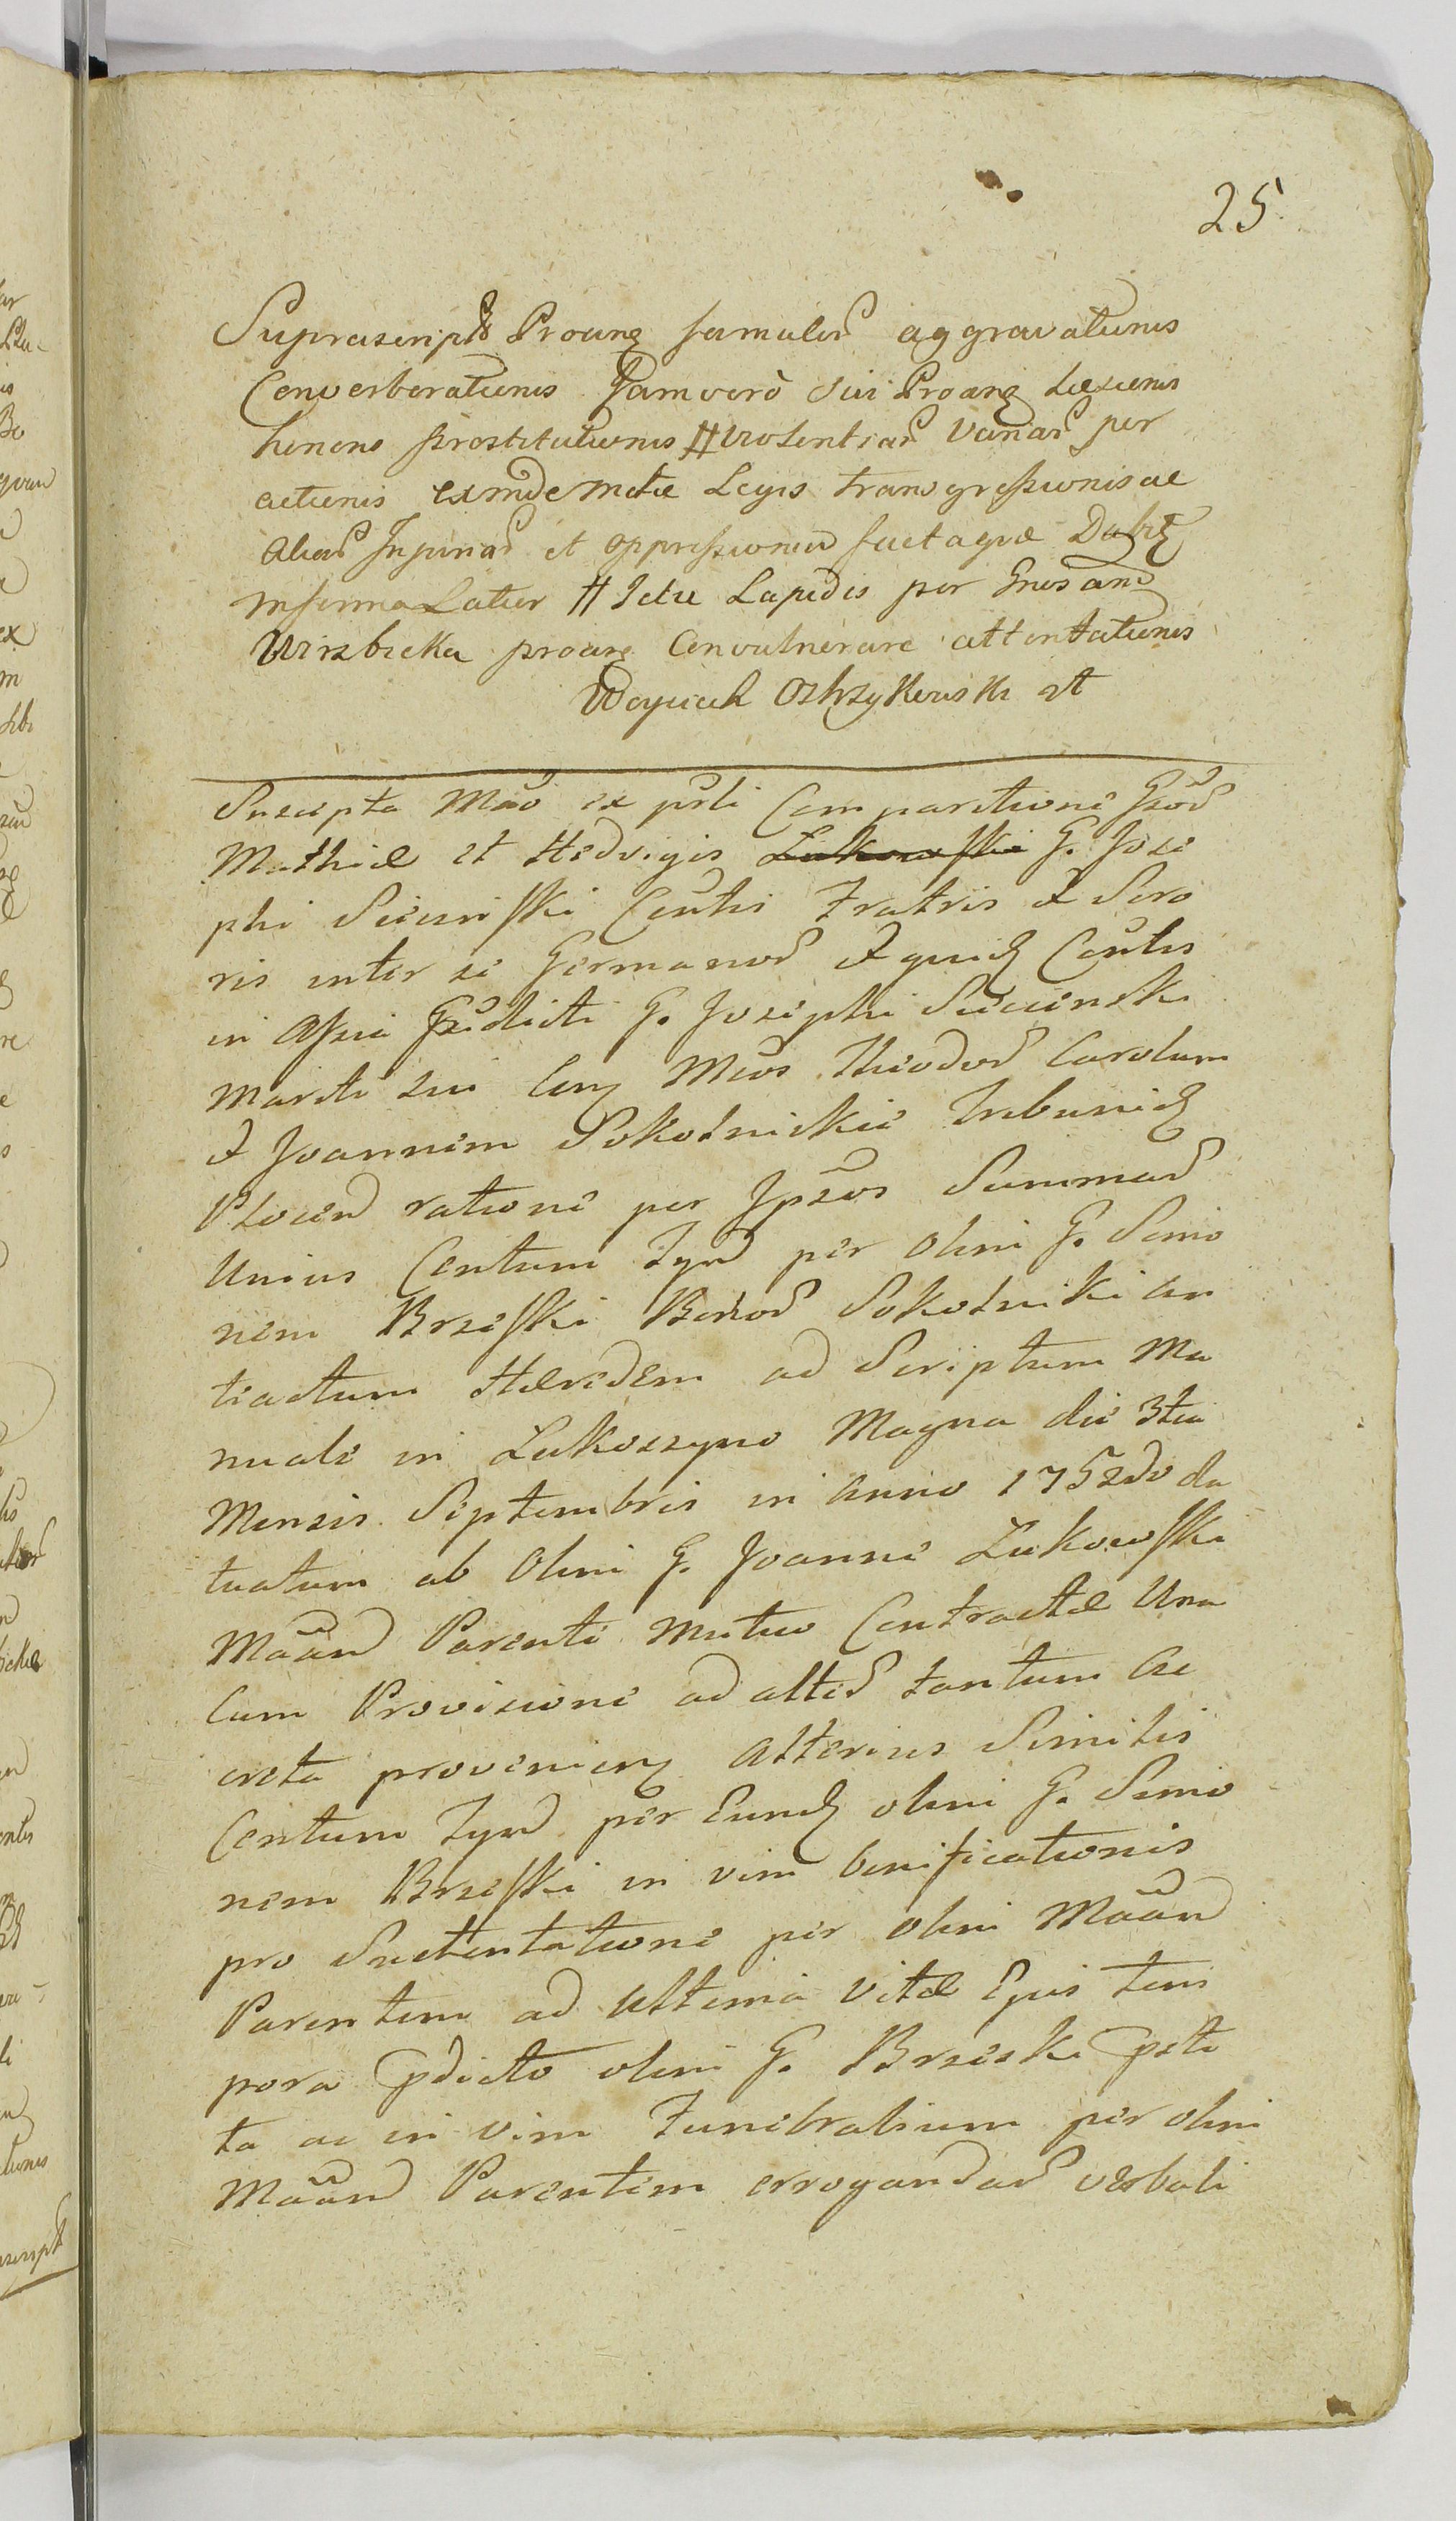 25
Suprascript Proang famulor aggravationis
Converberationis Jamvero sui Proang Laesionis
honoris prostitutionis # violentiar variar per
actionis exindemetae Legis transgressionis ac
aliar Injuriar et oppressionu factaque
in forma Latior # Ictu Lapidis per Gnosam
Wirzbicka proang Convulnerare attentationis
Woyciech Ostrzykowski
Suscepta Mao ex parti Comparitione Gsor
Mathiae et Hedvigis Lukowski G. Jose
phi Siecinski Conthis Fratris & Soro
ris inter se Germanor & quid Conthis
in assia G. Josephi Siecinski
Mariti sui Cong Mcos Theodor Carolum
& Joannem Sokolnickie Tribunid
Plocen ratione per Ipsos Summar
Unius Centum Tynf per olim G. Simo
nem Brzeski Bonor Sokolniki an
tiactum Haeredem ad Scriptum Ma
nuale in Lukoszyno Magna die 3tia
Mensis Septembris in anno 1752do da
tuatum ab Olim G. Joanne Lukowski
Maan Parente mutuo Contractae Una
cum Provisione ad alter tantum ac
creta provenieng alterius Similis
Centum Tynf per Eund olim G. Simo
nem Brzeski in vim bonificationis
pro Suctentatione per olim Maan
Parentem ad ultima vitae Ejus tem
pora pdicto olim G. Brzeski psti
ta ac in vim Funebralium per olim
Maan Parentem errogandar verbali